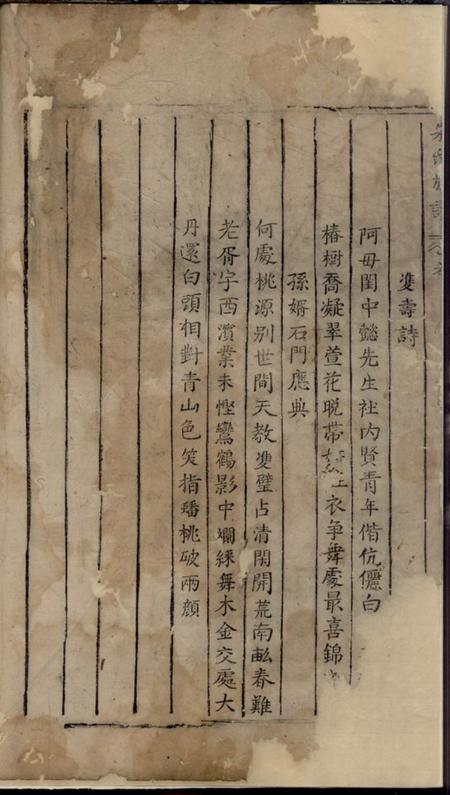 雙壽詩
阿母閨中懿先生社內賢青年偕伉儷白
椿樹喬凝翠萱花晚帶衣爭舞處最喜錦
孫婿石門應典
何處桃源別世間天教雙璧占清閑開荒南畝春難
老胥宇西濱業未慳鸞鶴影中斕綵舞木金交處大
丹還白頭相對青山色笑指蟠桃破兩顏